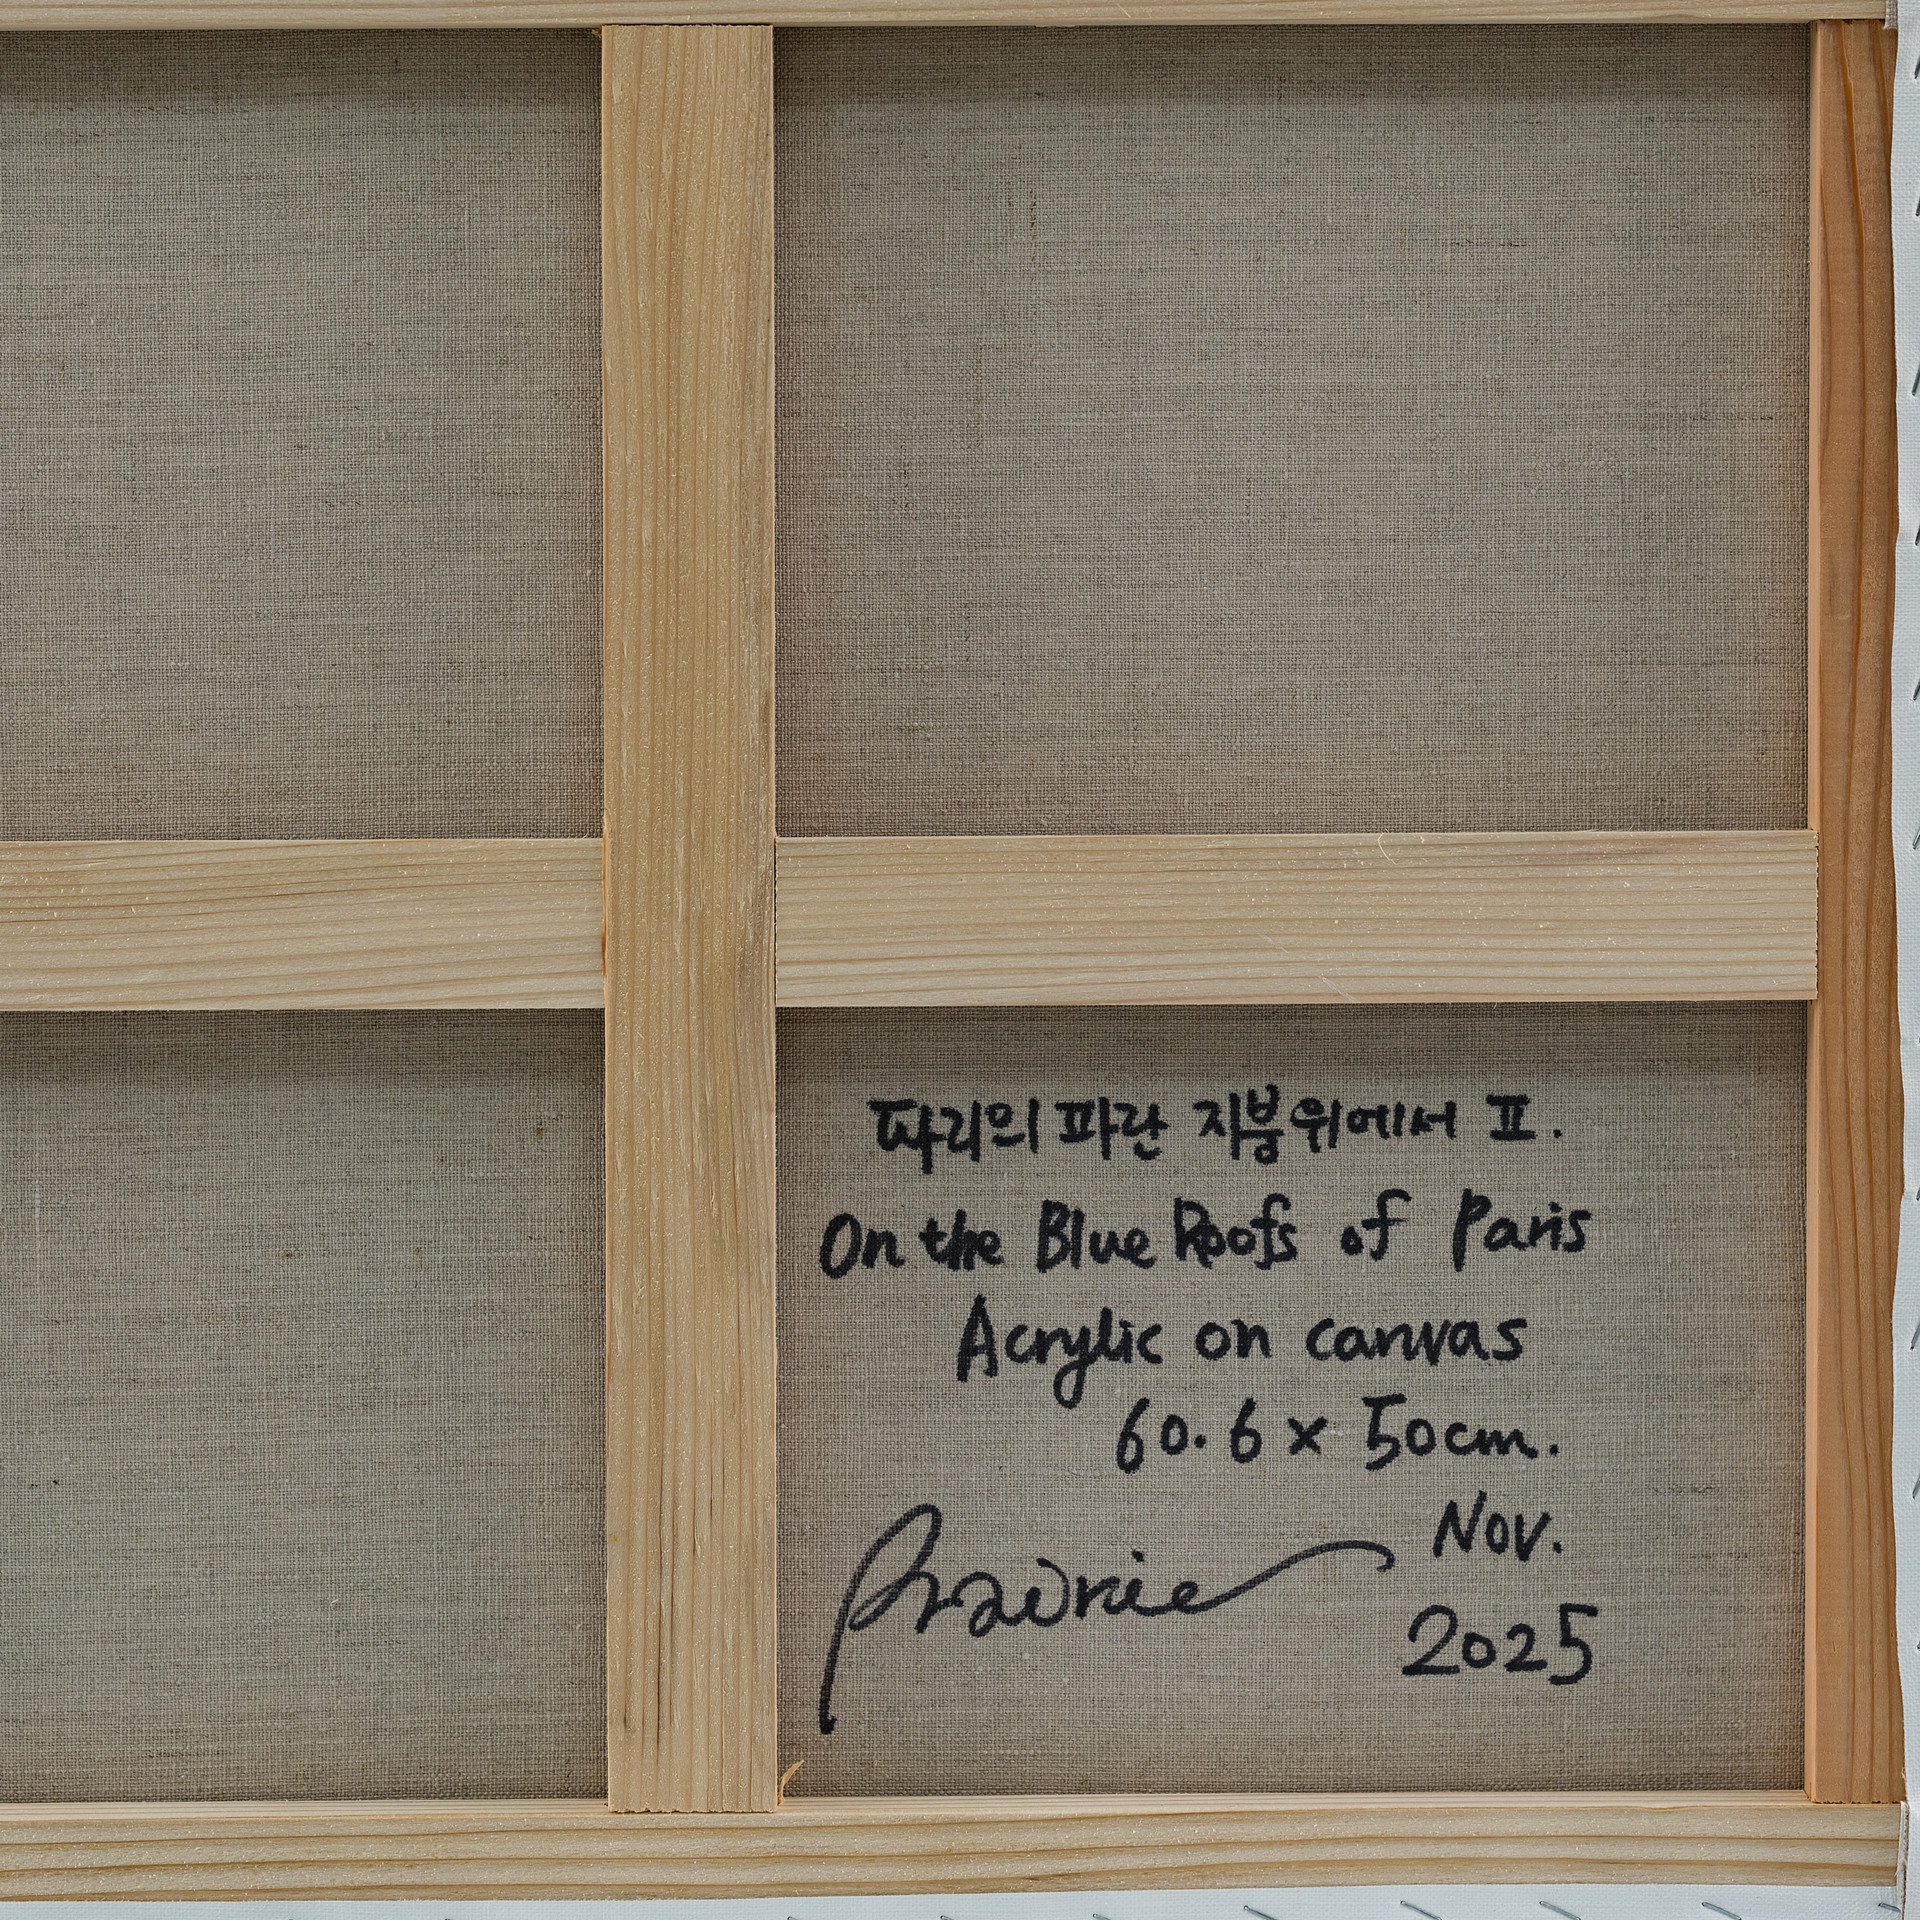 파리의 파란 지붕위에서 Ⅱ.
On the Blue Roofs of Paris
Acrylic on canvas
60.6 x 50cm.
Nov.
Prairie
2025